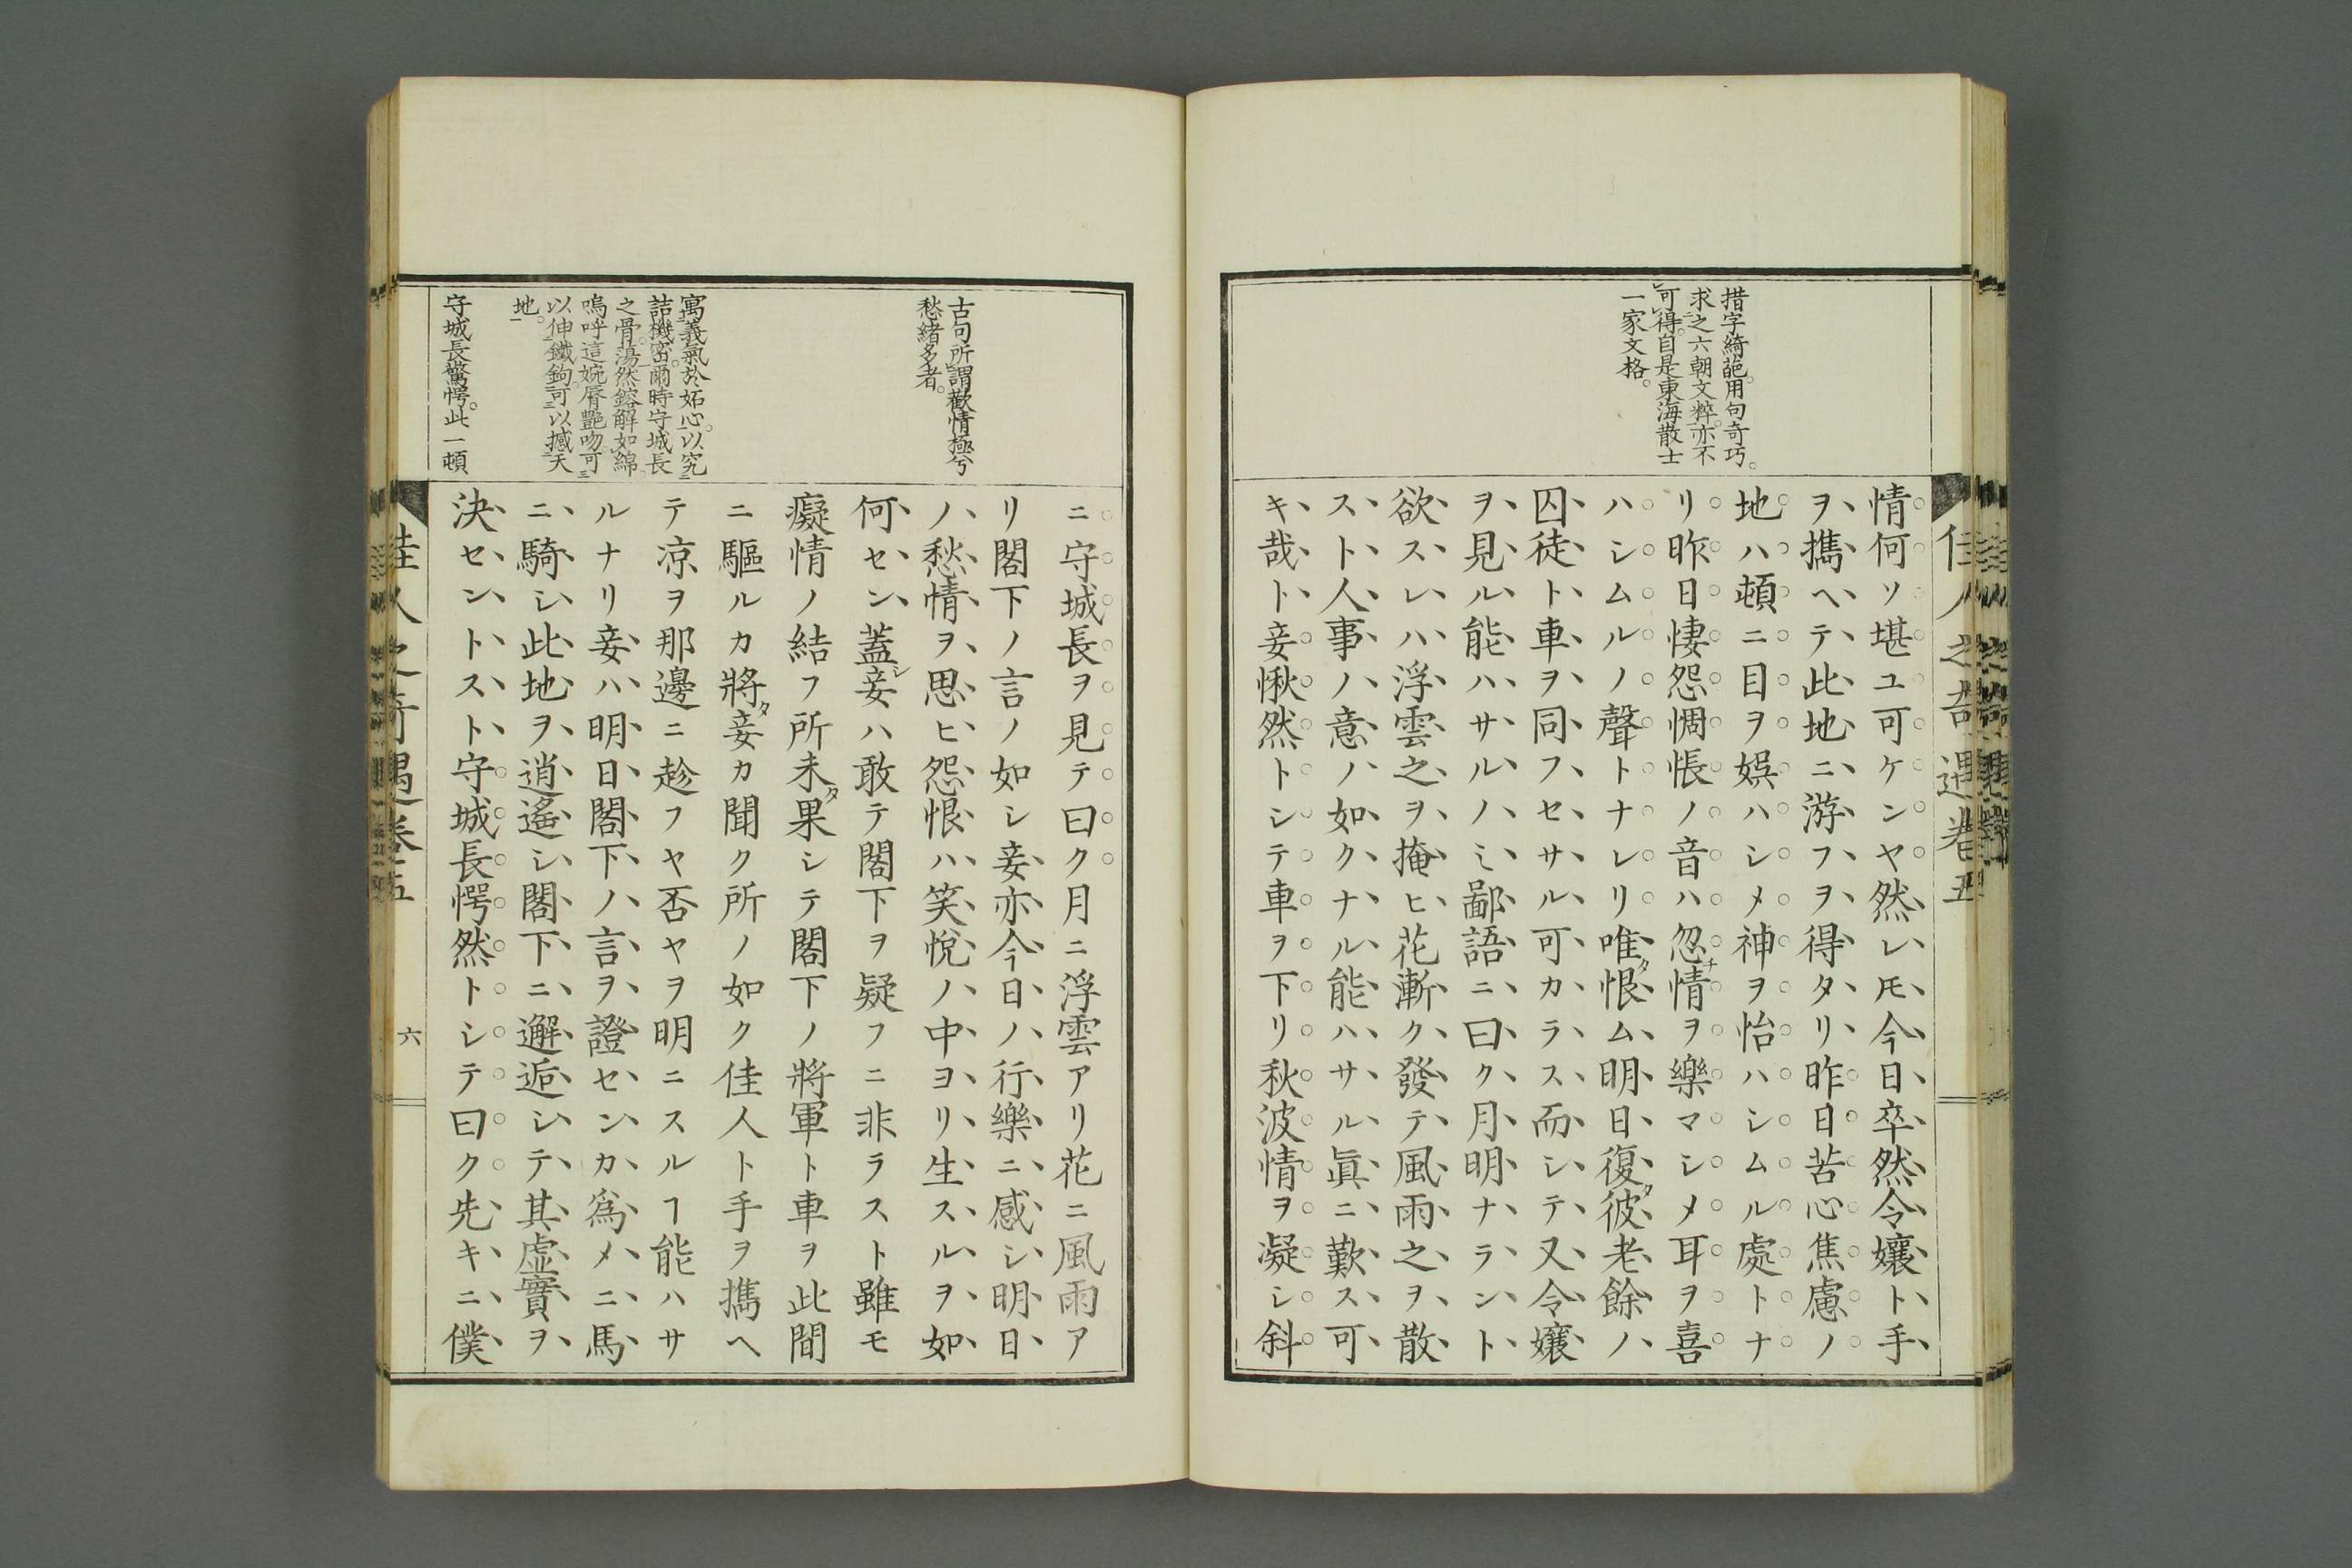 措字綺葩用句奇巧
求之六朝文粹亦不
可得自是東海散士
一家文格
情何ソ堪ユ可ケンヤ然レ𪜈今日卒然令孃ト手
ヲ擕ヘテ此地ニ游フヲ得タリ昨日苦心焦慮ノ
地ハ頓ニ目ヲ娯ハシメ神ヲ怡ハシムル處トナ
リ昨日悽怨惆悵ノ音ハ忽チ情ヲ樂マシメ耳ヲ喜
ハシムルノ聲トナレリ唯タ恨ム明日復タ彼老餘ノ
囚徒ト車ヲ同フセサル可カラス而シテ又令孃
ヲ見ル能ハサルノミ鄙語ニ曰ク月明ナラント
欲スレハ浮雲之ヲ掩ヒ花漸ク發テ風雨之ヲ散
スト人事ノ意ノ如クナル能ハサル眞ニ歎ス可
キ哉ト妾愀然トシテ車ヲ下リ秋波情ヲ凝シ斜
佳人之奇遇卷五
古句所謂歡情極兮
愁緒多者
寓義氣於妬心以究
詰機密爾時守城長
之骨蕩然鎔解如綿
嗚呼這婉脣艷吻可
以伸鐵鉤可以撼天
地
守城長驚愕此一頓
ニ守城長ヲ見テ曰ク月ニ浮雲アリ花ニ風雨ア
リ閣下ノ言ノ如シ妾亦今日ノ行樂ニ感シ明日
ノ愁情ヲ思ヒ怨恨ハ笑悅ノ中ヨリ生スルヲ如
何セン蓋シ妾ハ敢テ閣下ヲ疑フニ非ラスト雖モ
癡情ノ結フ所未タ果シテ閣下ノ將軍ト車ヲ此間
ニ驅ルカ將タ妾カ聞ク所ノ如ク佳人ト手ヲ擕ヘ
テ凉ヲ那邊ニ趁フヤ否ヤヲ明ニスルヿ能ハサ
ルナリ妾ハ明日閣下ノ言ヲ證センカ爲メニ馬
ニ騎シ此地ヲ逍遙シ閣下ニ邂逅シテ其虛實ヲ
決セントスト守城長愕然トシテ曰ク先キニ僕
佳人之奇遇卷五
六